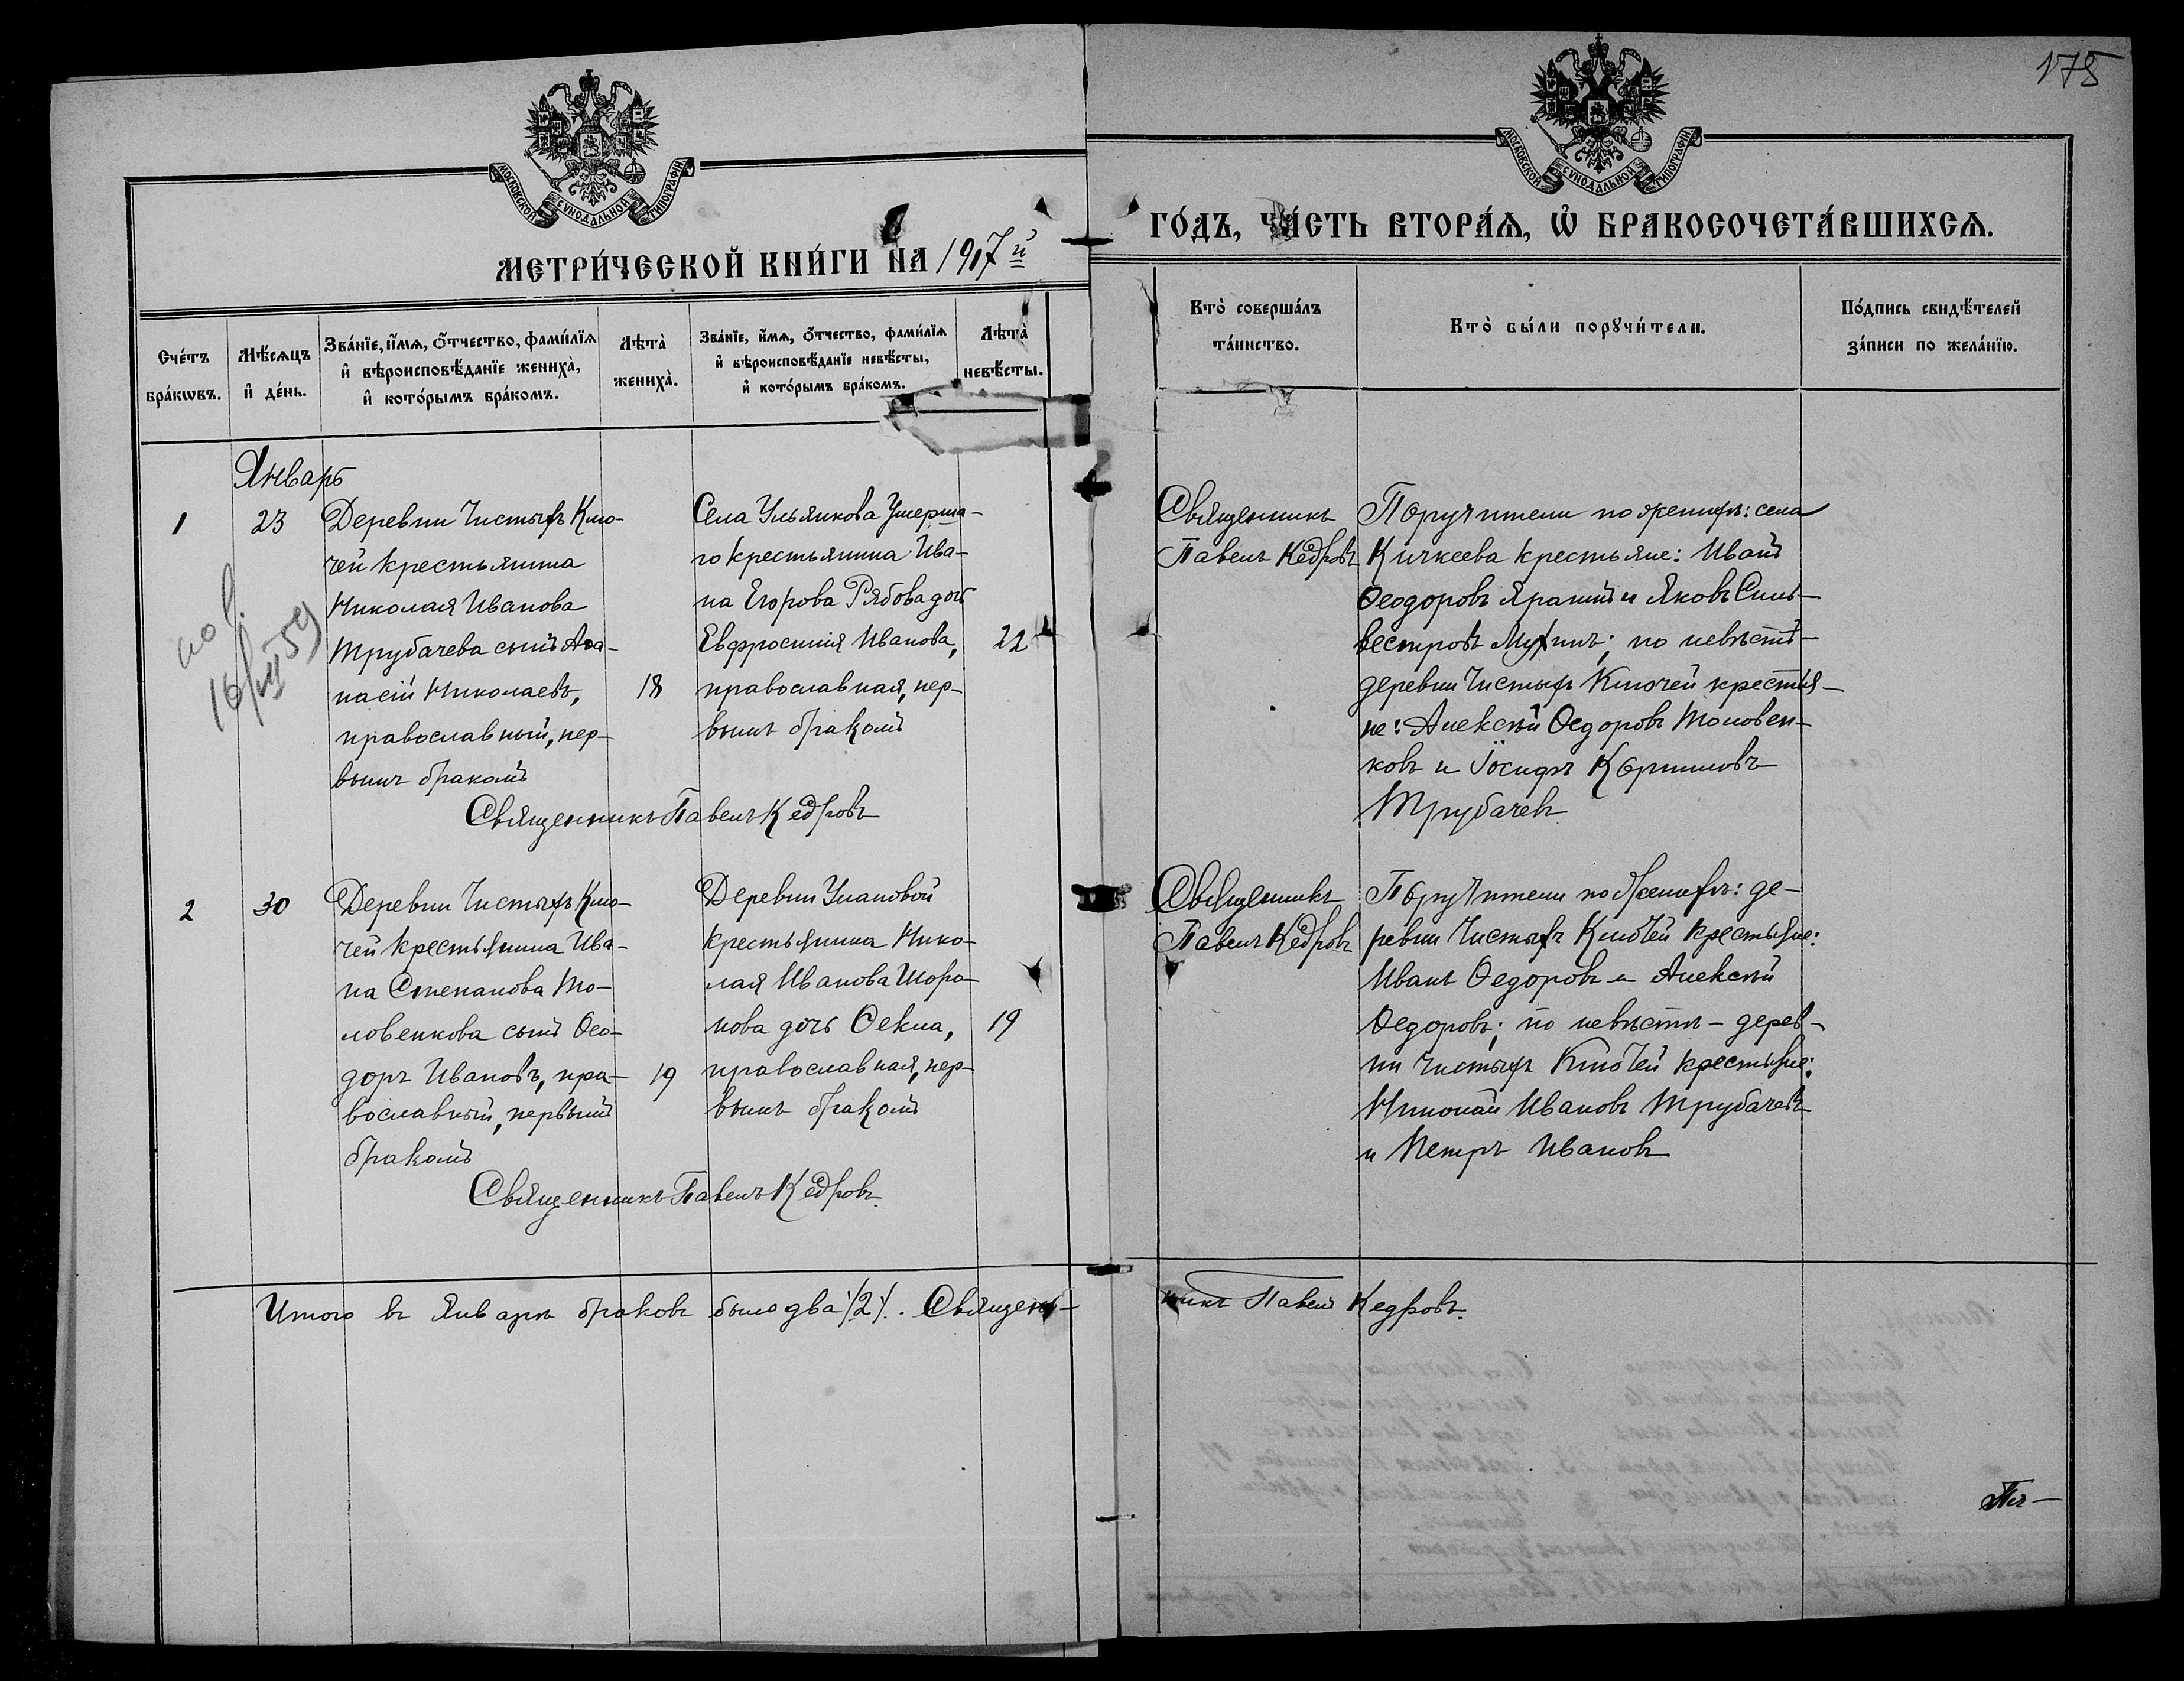 175
МОСКОВСКОЙ СѴНОДАЛЬНОЙ ТИПОГРАФІИ
МОСКОВСКОЙ СѴНОДАЛЬНОЙ ТИПОГРАФІИ
МЕТРИ́ЧЕСКОЙ КНИ́ГИ НА 1917й
ГО́ДЪ, ЧА́СТЬ ВТОРА́Ѧ, Ѽ БРАКОСОЧЕТА́ВШИХСѦ.
Сче́тъ бра́кѡвъ.
Мѣ́сѧцъ и҆ де́нь.
Зва́нїе, и҆́мѧ, ѻ҆́тчество, фами́лїѧ и҆ вѣроисповѣ́данїе жениха̀, и҆ кото́рымъ бра́комъ.
Лѣта̀ жениха̀.
Зва́нїе, и҆́мѧ, ѻ҆́тчество, фами́лїѧ и҆ вѣроисповѣ́данїе невѣ́сты, и҆ кото́рымъ бра́комъ.
Лѣта̀ невѣ́сты.
Кто̀ соверша́лъ та́инство.
Кто̀ бы́ли порꙋчи́тели.
По́дпись свидѣ́телей за́писи по жела́нїю.
Январь
1
23
Деревни Чистыхъ Клю-
чей крестьянина
Николая Иванова
Трубачева сынъ Аѳа-
насій Николаевъ,
православный, пер-
вымъ бракомъ
18
Села Ульянкова Умерша-
го крестьянина Ива-
на Егорова Рябова дочь
Евфросинія Иванова,
православная, пер-
вымъ бракомъ
22
Священникъ Павелъ Кедровъ
Священникъ
Павелъ Кедровъ
Поручители по женихѣ: села
Кичкеева крестьяне: Иванъ
Ѳеодоровъ Ярагинъ и Яковъ Силь-
вестровъ Мухинъ; по невѣстѣ-
деревни Чистыхъ Ключей крестья-
не: Алексѣй Ѳедоровъ Толовен-
ковъ и Іосифъ Корниловъ
Трубачевъ
16/VII 59
2
30
Деревни Чистыхъ Клю-
чей крестьянина Ива-
на Степанова То-
ловенкова сынъ Ѳео-
доръ Ивановъ, пра-
вославный, первымъ
бракомъ
19
Деревни Улановой
крестьянина Нико-
лая Иванова Шора-
нова дочь Ѳекла,
православная, пер-
вымъ бракомъ
19
Священникъ Павелъ Кедровъ.
Священникъ
Павелъ Кедровъ
Поручители по женихѣ: де-
ревни Чистыхъ Ключей крестьяне:
Иванъ Ѳедоровъ и Алексѣй
Ѳедоровъ; по невѣстѣ - дерев-
ни Чистыхъ Ключей крестьяне:
Николай Ивановъ Трубачевъ
и Петръ Ивановъ
Итого въ Январѣ браковъ было два /2/. Священ-
никъ Павелъ Кедровъ.